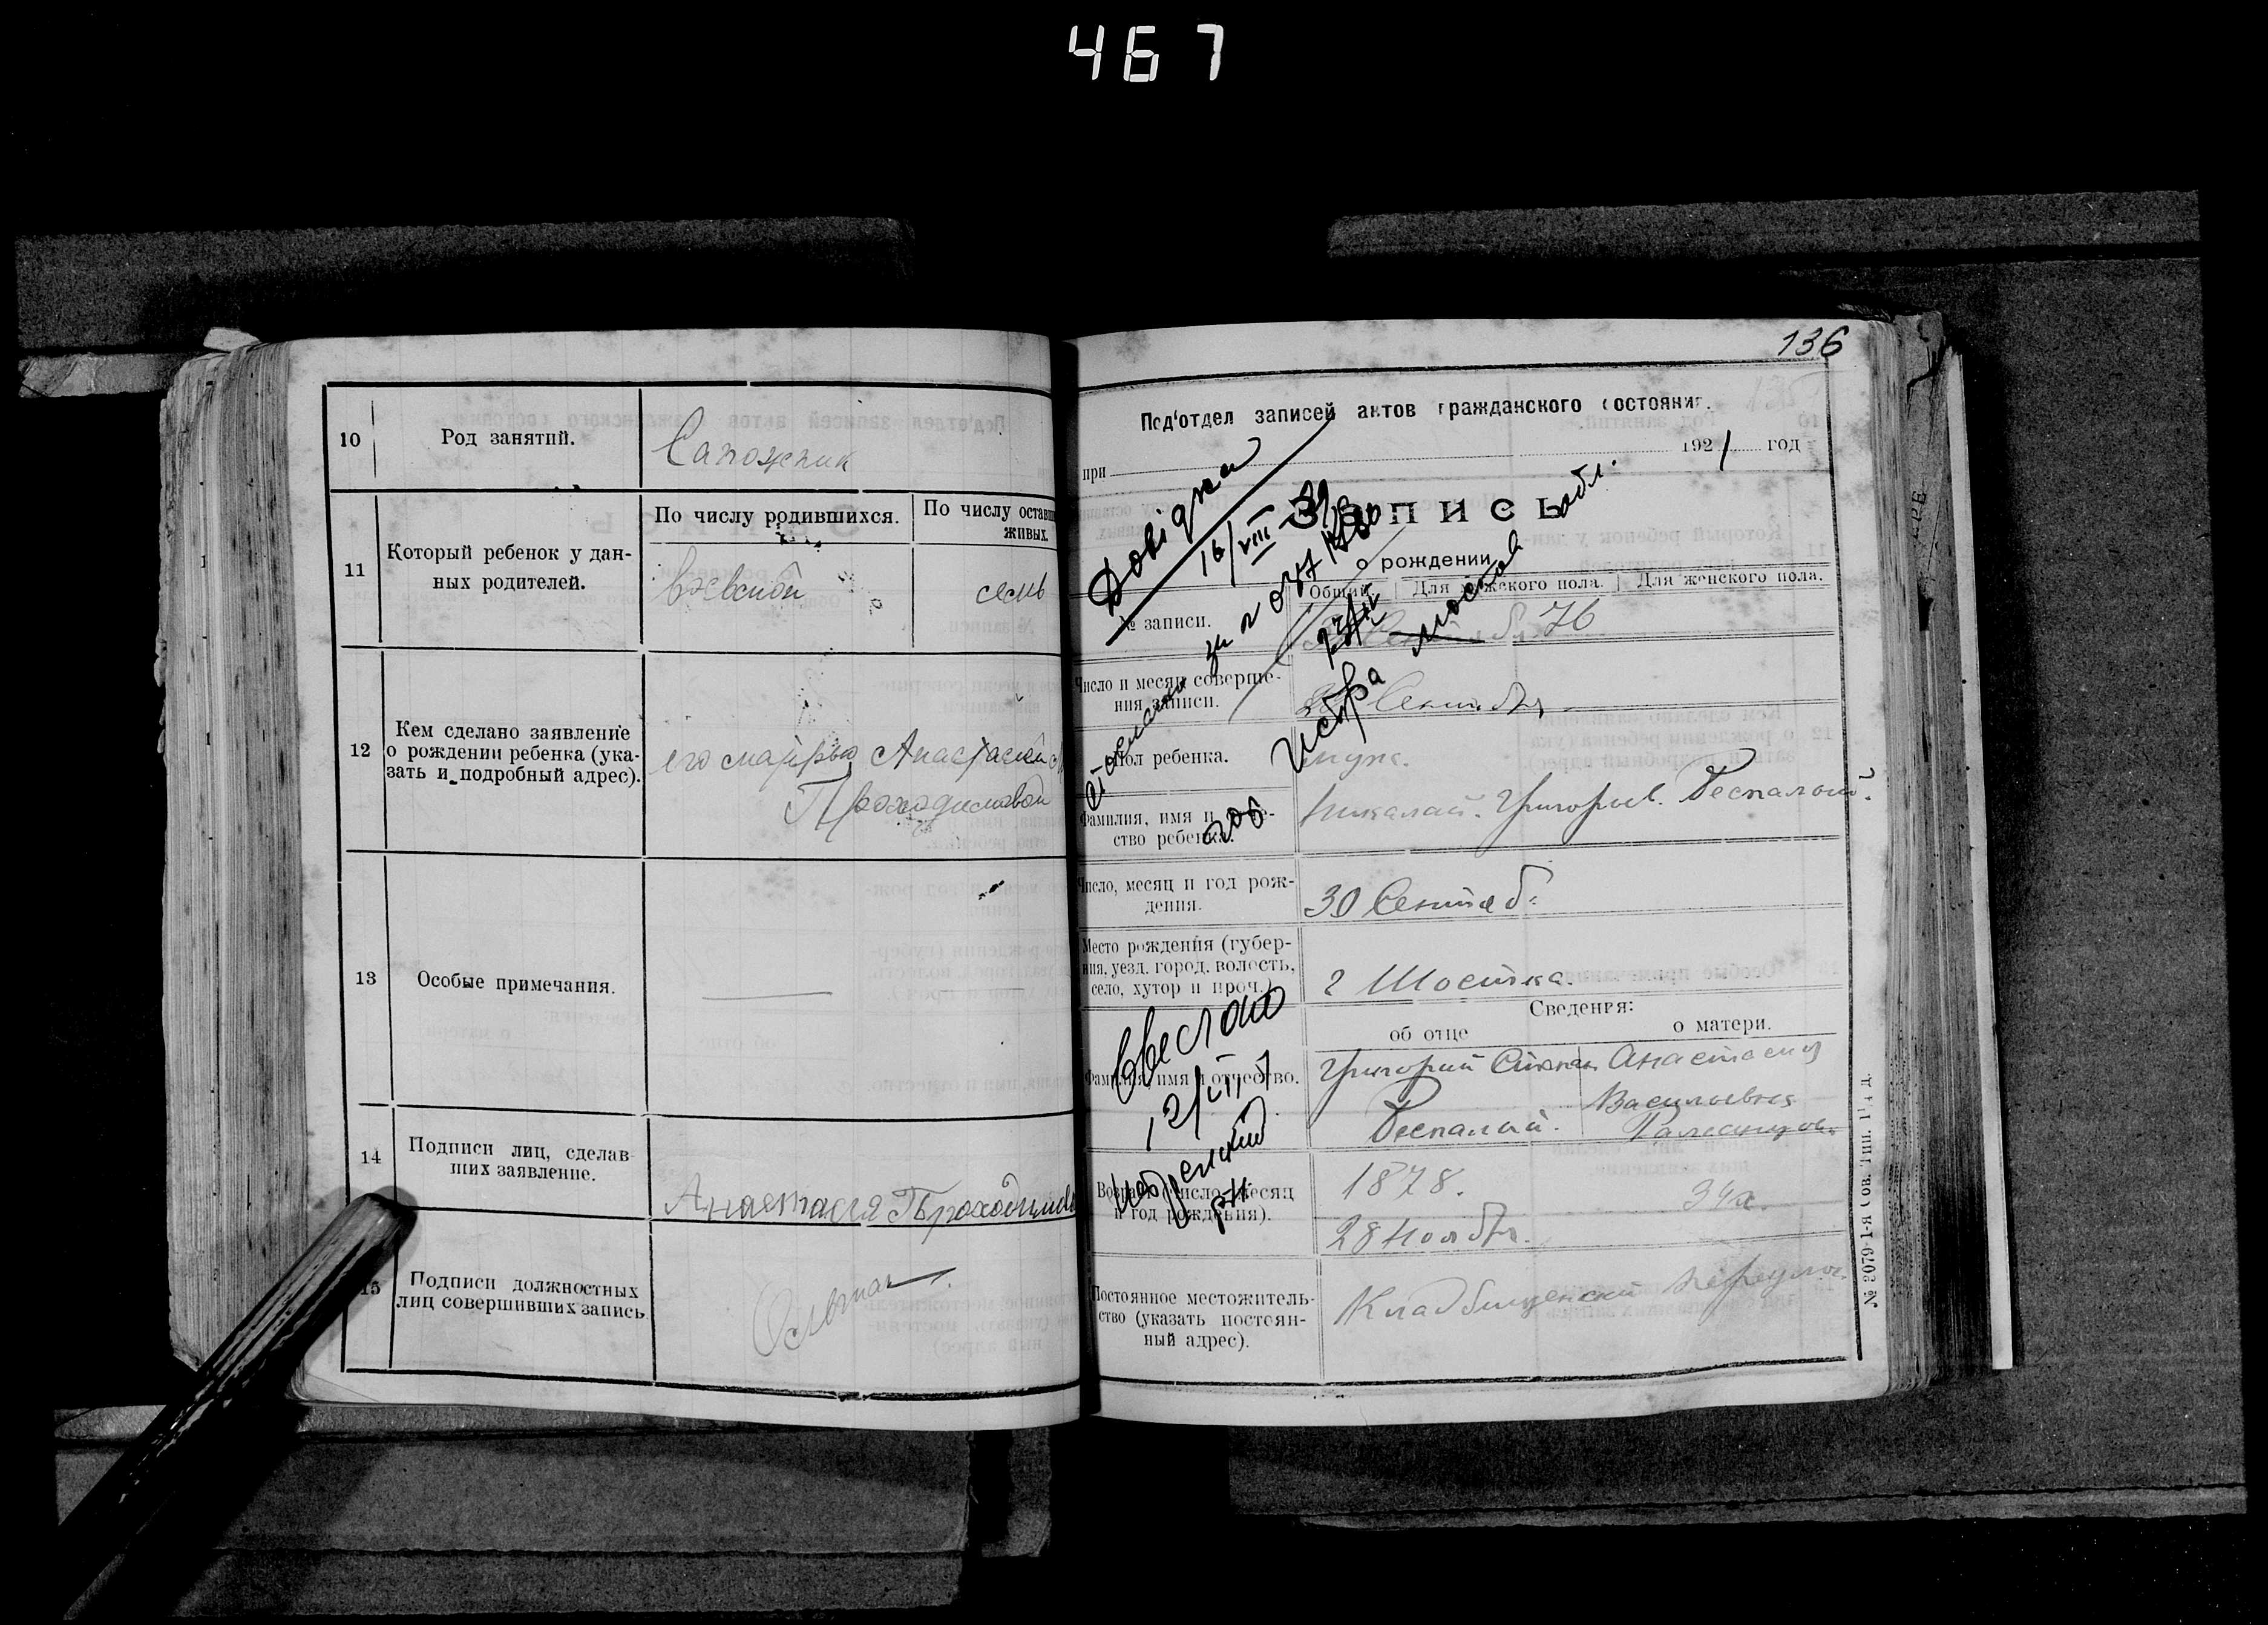 467
10
Род занятий.
Сапожник
11
Который ребенок у дан-
ных родителей.
По числу родившихся.
По числу оставш
живых.
семь
12
Кем сделано заявление
о рождении ребенка (ука-
зать и подробный адрес).
его матерью Анастасией
13
Особые примечания.
14
Подписи лиц, сделав-
ших заявление.
Анастасия
15
Подписи должностных
лиц совершивших запись
136
Под'отдел записей актов гражданского состояния.
при 1921 год
Запись
о рождении
Общий. Для мужского пола. Для женского пола.
№ записи.
76
Число и месяц соверше-
ния записи.
Сентября
Пол ребенка.
муж.
Фамилия, имя и отче-
ство ребенка.
Николай Григорьев. Беспалый.
Число, месяц и год рож-
дения.
30 Сентяб.
Место рождения (губер-
ния, уезд, город, волость,
село, хутор и проч.)
г Шостка.
Сведения:
об отце
о матери.
Фамилия, имя и отчество.
Григорий Степан
Беспалый.
Анастасия
Васильевна
Возраст (число, месяц
и год рождения).
1878.
28 Ноября.
34 л.
Постоянное местожитель-
ство (указать постоян-
ный адрес).
Кладбищенский переулок.
Довідка
16/VIII-39
Истра Москов обл.
12/III
№ 2079 1-я Сов. Тип.